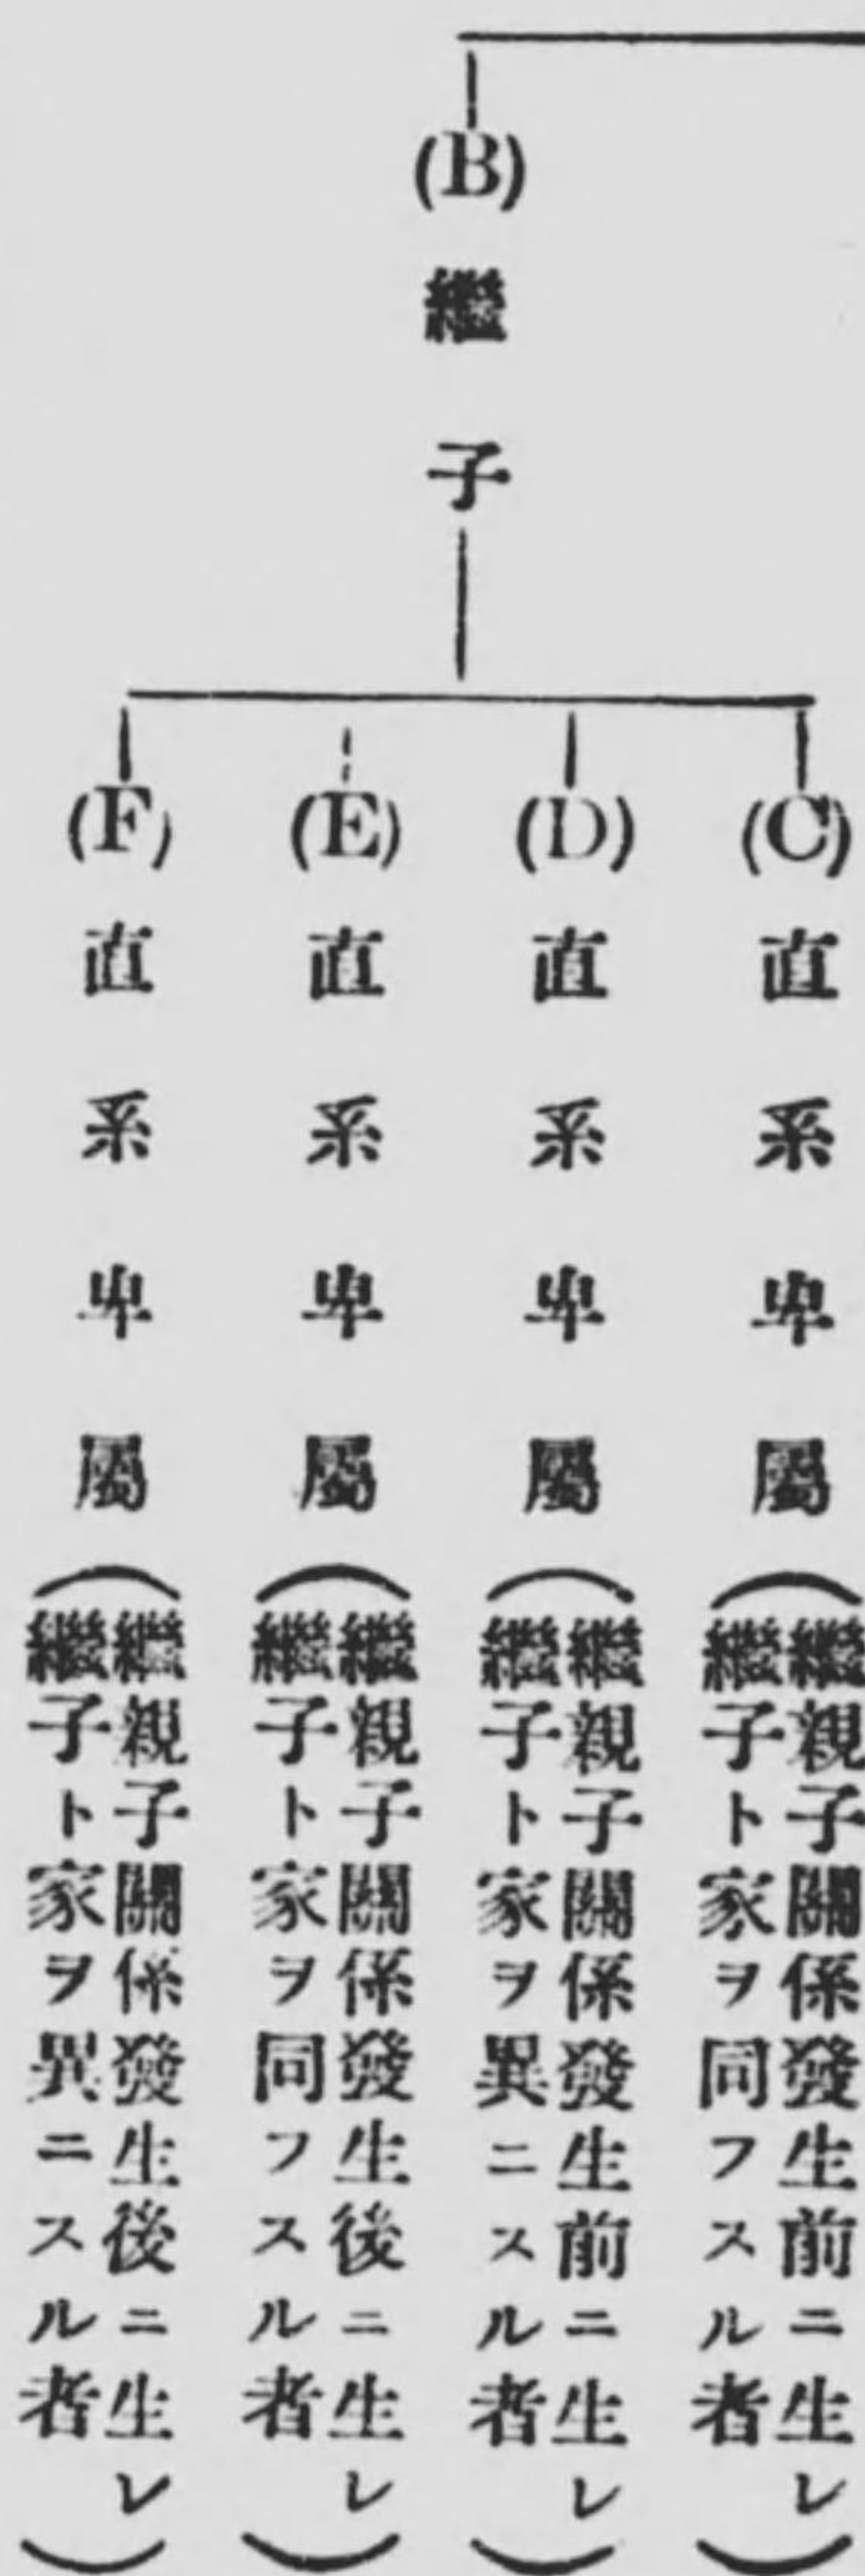 (B)繼子
(C)直系卑屬
(繼親子關係發生前ニ生レ
繼子ト家ヲ同フスル者)
(D)直系卑屬
(繼親子關係發生前ニ生レ
繼子ト家ヲ異ニスル者)
(E)直系卑屬
(繼親子關係發生後ニ生レ
繼子ト家ヲ同フスル者)
(F)直系卑屬
(繼親子關係發生後ニ生レ
繼子ト家ヲ異ニスル者)